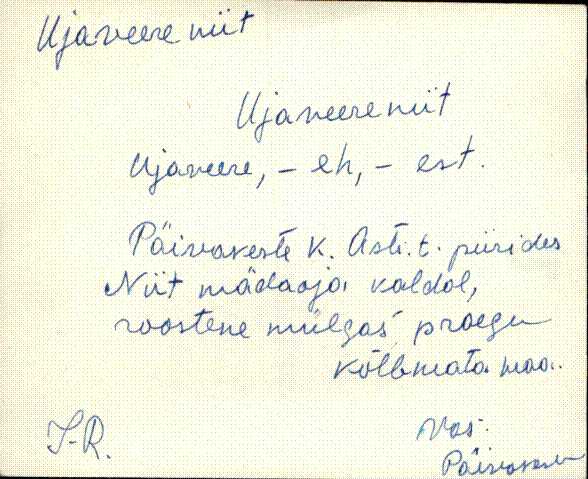 Ujaveere niit
Ujaveereniit
Ujaveere, - eh, - est.
Päivakeste k. Asti. t. piirides
Niit mädaoja kaldal,
roostene mülgas praegu
kõlbmata maa.
J-R.
Vas.
Päivakese